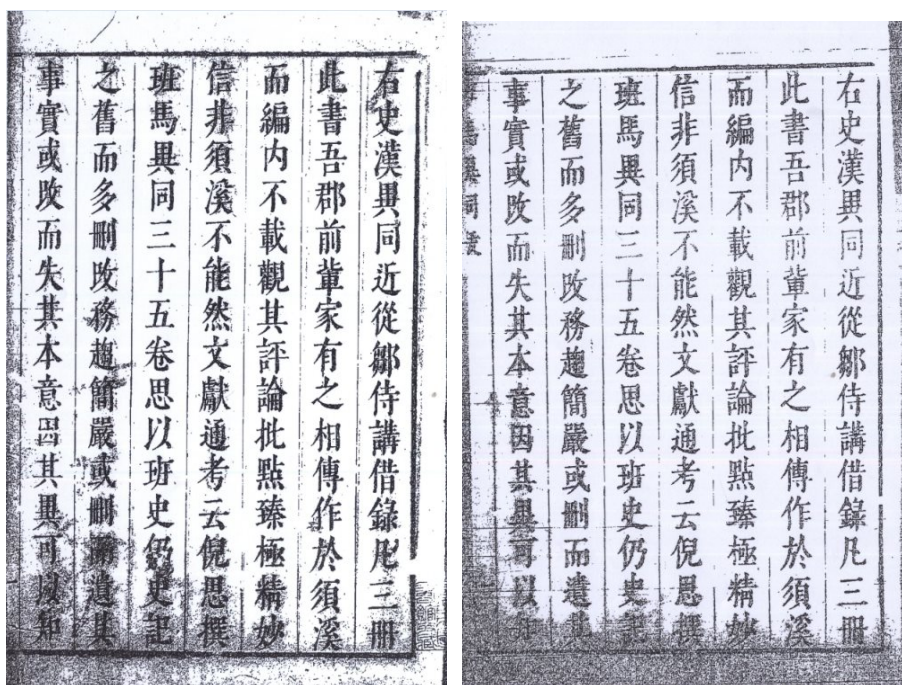 右史漢異同近從鄒侍講借錄凡三冊
此書吾郡前輩家有之相傳作於須溪
而編内不載觀其評論批點臻極精妙
信非須溪不能然文獻通考云倪思撰
班馬異同三十五卷思以班史仍史記
之舊而多刪改務趨簡嚴或刪而遺其
事實或改而失其本意因其異可以知
右史漢異同近從鄒侍講借錄凡三冊
此書吾郡前輩家有之相傳作於須溪
而編内不載觀其評論批點臻極精妙
信非須溪不能然文獻通考云倪思撰
班馬異同三十五卷思以班史仍史記
之舊而多刪改務趨簡嚴或刪而遺其
事實或改而失其本意因其異可以知
馬異同